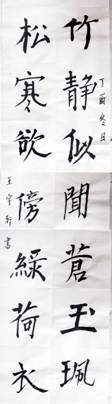 丁酉冬
竹静似聞蒼玉珮
松寒欲傍綠荷衣
王宇軒書